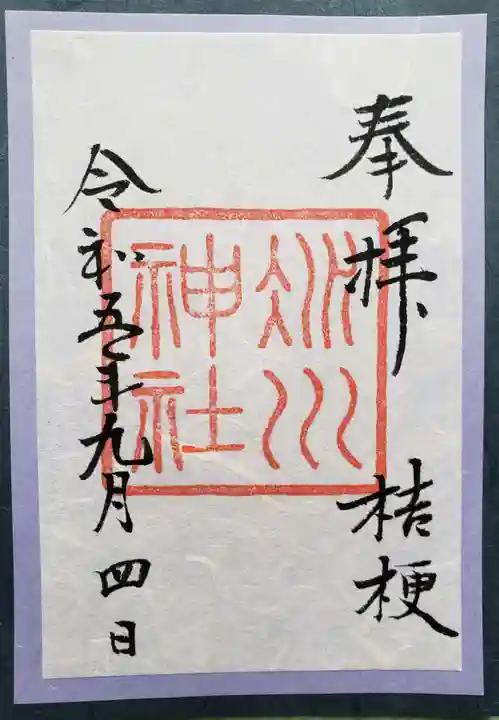 奉拝　桔梗
氷川
神社
令和五年九月四日